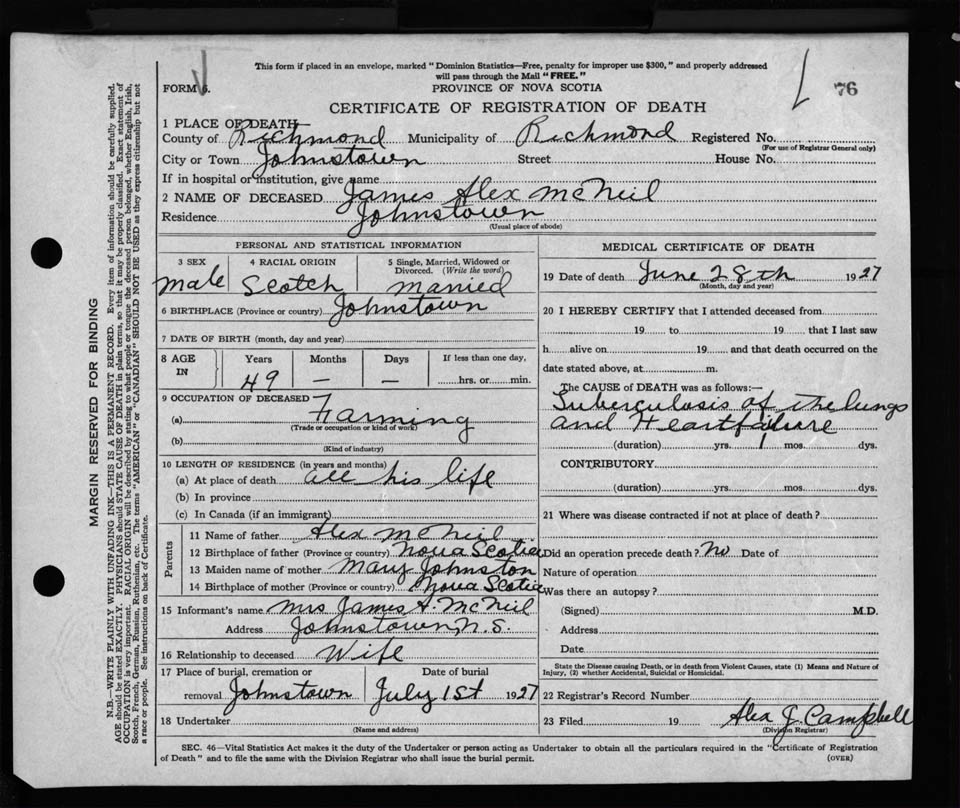 This form if placed in an envelope, marked "Dominion Statistics—Free, penalty for improper use $300," and properly addressed
will pass through the Mail "FREE."
FORM 6.
PROVINCE OF NOVA SCOTIA
76
CERTIFICATE OF REGISTRATION OF DEATH
1 PLACE OF DEATH
County of Richmond Municipality of Richmond Registered No.
(For use of Registrar General only)
City or Town Johnstown Street House No.
If in hospital or institution, give name
2 NAME OF DECEASED James Alex McNeil
Residence Johnstown
(Usual place of abode)
PERSONAL AND STATISTICAL INFORMATION
3 SEX
Male
4 RACIAL ORIGIN
Scotch
5 Single, Married, Widowed or
Divorced. (Write the word)
Married
6 BIRTHPLACE (Province or country) Johnstown
7 DATE OF BIRTH (month, day and year)
8 AGE IN
Years Months Days If less than one day,
49 — — hrs. or min.
9 OCCUPATION OF DECEASED
(a) Farming
(Trade or occupation or kind of work)
(b)
(Kind of industry)
10 LENGTH OF RESIDENCE (in years and months)
(a) At place of death all his life
(b) In province
(c) In Canada (if an immigrant)
Parents
11 Name of father Alex McNeil
12 Birthplace of father (Province or country) Nova Scotia
13 Maiden name of mother Mary Johnston
14 Birthplace of mother (Province or country) Nova Scotia
15 Informant's name Mrs James A. McNeil
Address Johnstown, N.S.
16 Relationship to deceased Wife
17 Place of burial, cremation or Date of burial
removal Johnstown July 1st 1927
18 Undertaker
(Name and address)
MEDICAL CERTIFICATE OF DEATH
19 Date of death June 28th 1927
(Month, day and year)
20 I HEREBY CERTIFY that I attended deceased from
19 to 19 that I last saw
h alive on 19 and that death occurred on the
date stated above, at m.
The CAUSE of DEATH was as follows:—
Tuberculosis of the lungs
and Heart failure
(duration) yrs. 1 mos. dys.
CONTRIBUTORY
(duration) yrs. mos. dys.
21 Where was disease contracted if not at place of death?
Did an operation precede death? No Date of
Nature of operation
Was there an autopsy?
(Signed) M.D.
Address
Date
State the Disease causing Death, or in death from Violent Causes, state (1) Means and Nature of
Injury, (2) whether Accidental, Suicidal or Homicidal.
22 Registrar's Record Number
23 Filed 19 Alex J. Campbell
(Division Registrar)
SEC. 46—Vital Statistics Act makes it the duty of the Undertaker or person acting as Undertaker to obtain all the particulars required in the "Certificate of Registration
of Death" and to file the same with the Division Registrar who shall issue the burial permit.
(OVER)
MARGIN RESERVED FOR BINDING
N.B.—WRITE PLAINLY WITH UNFADING INK—THIS IS A PERMANENT RECORD. Every item of information should be carefully supplied.
AGE should be stated EXACTLY. PHYSICIANS should STATE CAUSE OF DEATH in plain terms, so that it may be properly classified. Exact statement of
OCCUPATION is very important. RACIAL ORIGIN will be described by stating to what people or tongue the deceased person belonged, whether English, Irish,
Scotch, French, German, Russian, Ruthenian, etc. The terms "AMERICAN" or "CANADIAN" SHOULD NOT BE USED as they express citizenship but not
a race or people. See instructions on back of Certificate.